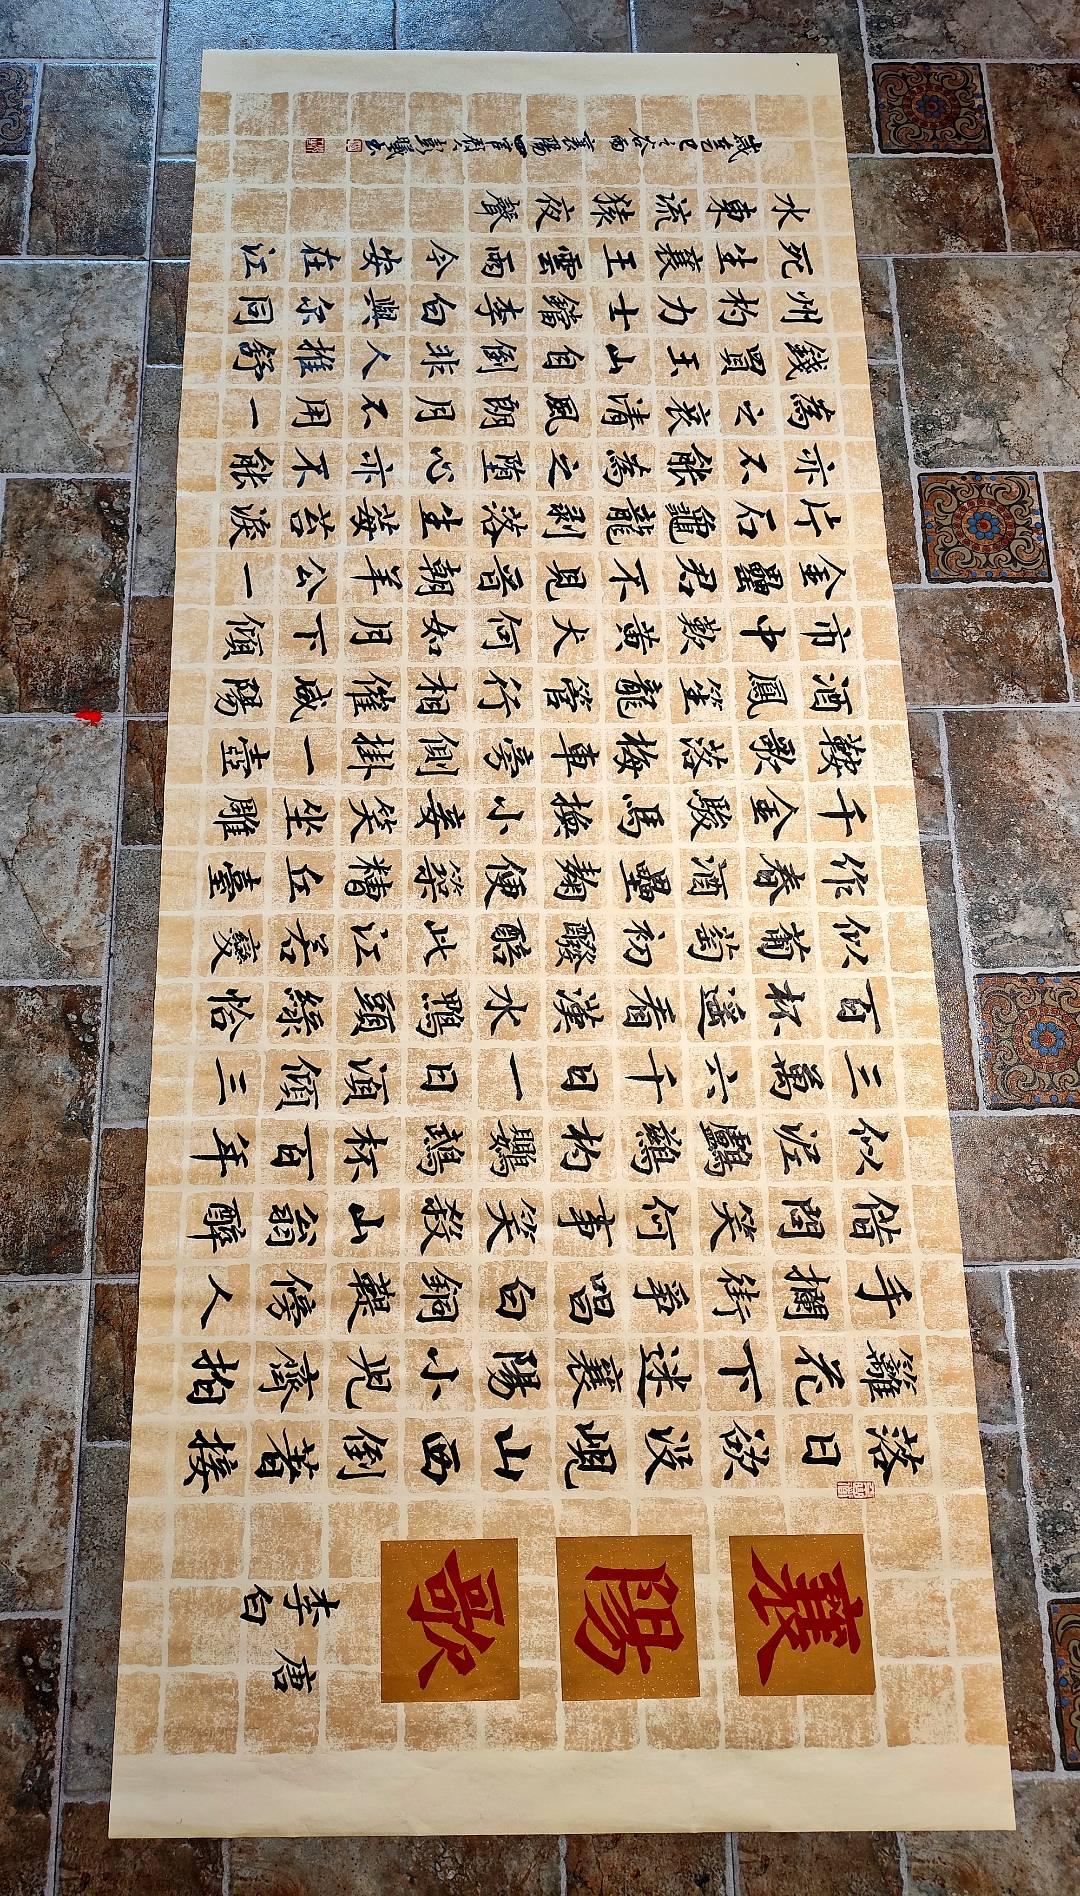 襄陽歌
唐 李白
落日欲没峴山西倒著接
籬花下迷襄陽小兒齊拍
手攔街爭唱白銅鞮傍人
借問笑何事笑殺山翁醉
似泥鸕鶿杓鸚鵡杯百年
三萬六千日一日須傾三
百杯遥看漢水鴨頭綠恰
似葡萄初醱醅此江若變
作春酒壘麴便築糟丘臺
千金駿馬換小妾笑坐雕
鞍歌落梅車旁側掛一壺
酒鳳笙龍管行相催咸陽
市中歎黄犬何如月下傾
金罍君不見晉朝羊公一
片石龜龍剥落生莓苔淚
亦不能為之墮心亦不能
為之哀清風朗月不用一
錢買玉山自倒非人推舒
州杓力士鐺李白與尔同
死生襄王雲雨今安在江
水東流猿夜聲
歲乙巳之谷雨襄陽